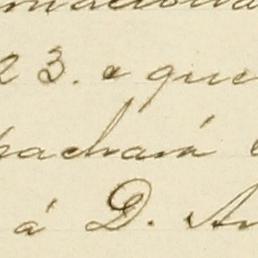 23. e que
pachará
á D. An